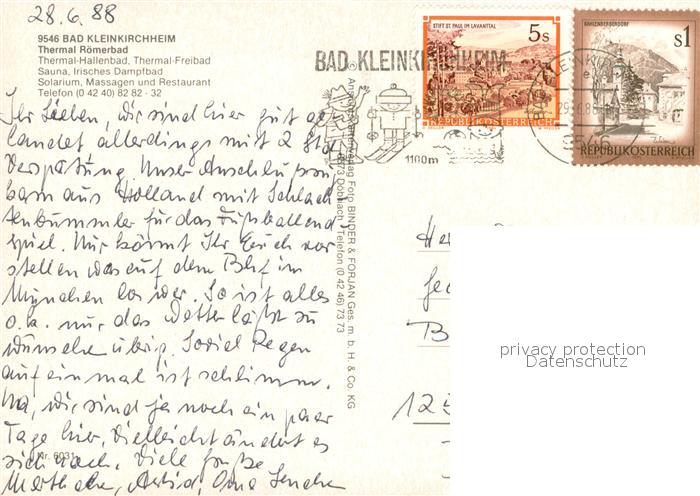 28.6.88
9546 BAD KLEINKIRCHHEIM
Thermal Römerbad
Thermal-Hallenbad, Thermal-Freibad
Sauna, Irisches Dampfbad
Solarium, Massagen und Restaurant
Telefon (0 42 40) 82 82 - 32
Ihr Lieben, wir sind hier gut ge
landet allerdings mit 2 Std
Verspätung. Unser Anschluß
kam aus Holland mit Schlach
tenbummler für das Fußballend
spiel. Nur könnt Ihr Euch vor
stellen was auf dem Bhf in
München los war. So ist alles
o.k. nur das Wetter läßt zu
wünschen übrig. Soviel Regen
auf einmal ist schlimm.
Na, wir sind ja noch ein paar
Tage hier, vielleicht ändert es
sich noch. Viele Grüße
Oma
Nr. 6031
BAD KLEINKIRCHHEIM
1100m
STIFT ST. PAUL IM LAVANTTAL
5s
REPUBLIK ÖSTERREICH
s1
REPUBLIK ÖSTERREICH
Foto BINDER & FORJAN Ges. m. b. H. & Co. KG
Döbriach, Telefon (0 42 46) 73 73
He
B
125
privacy protection
Datenschutz